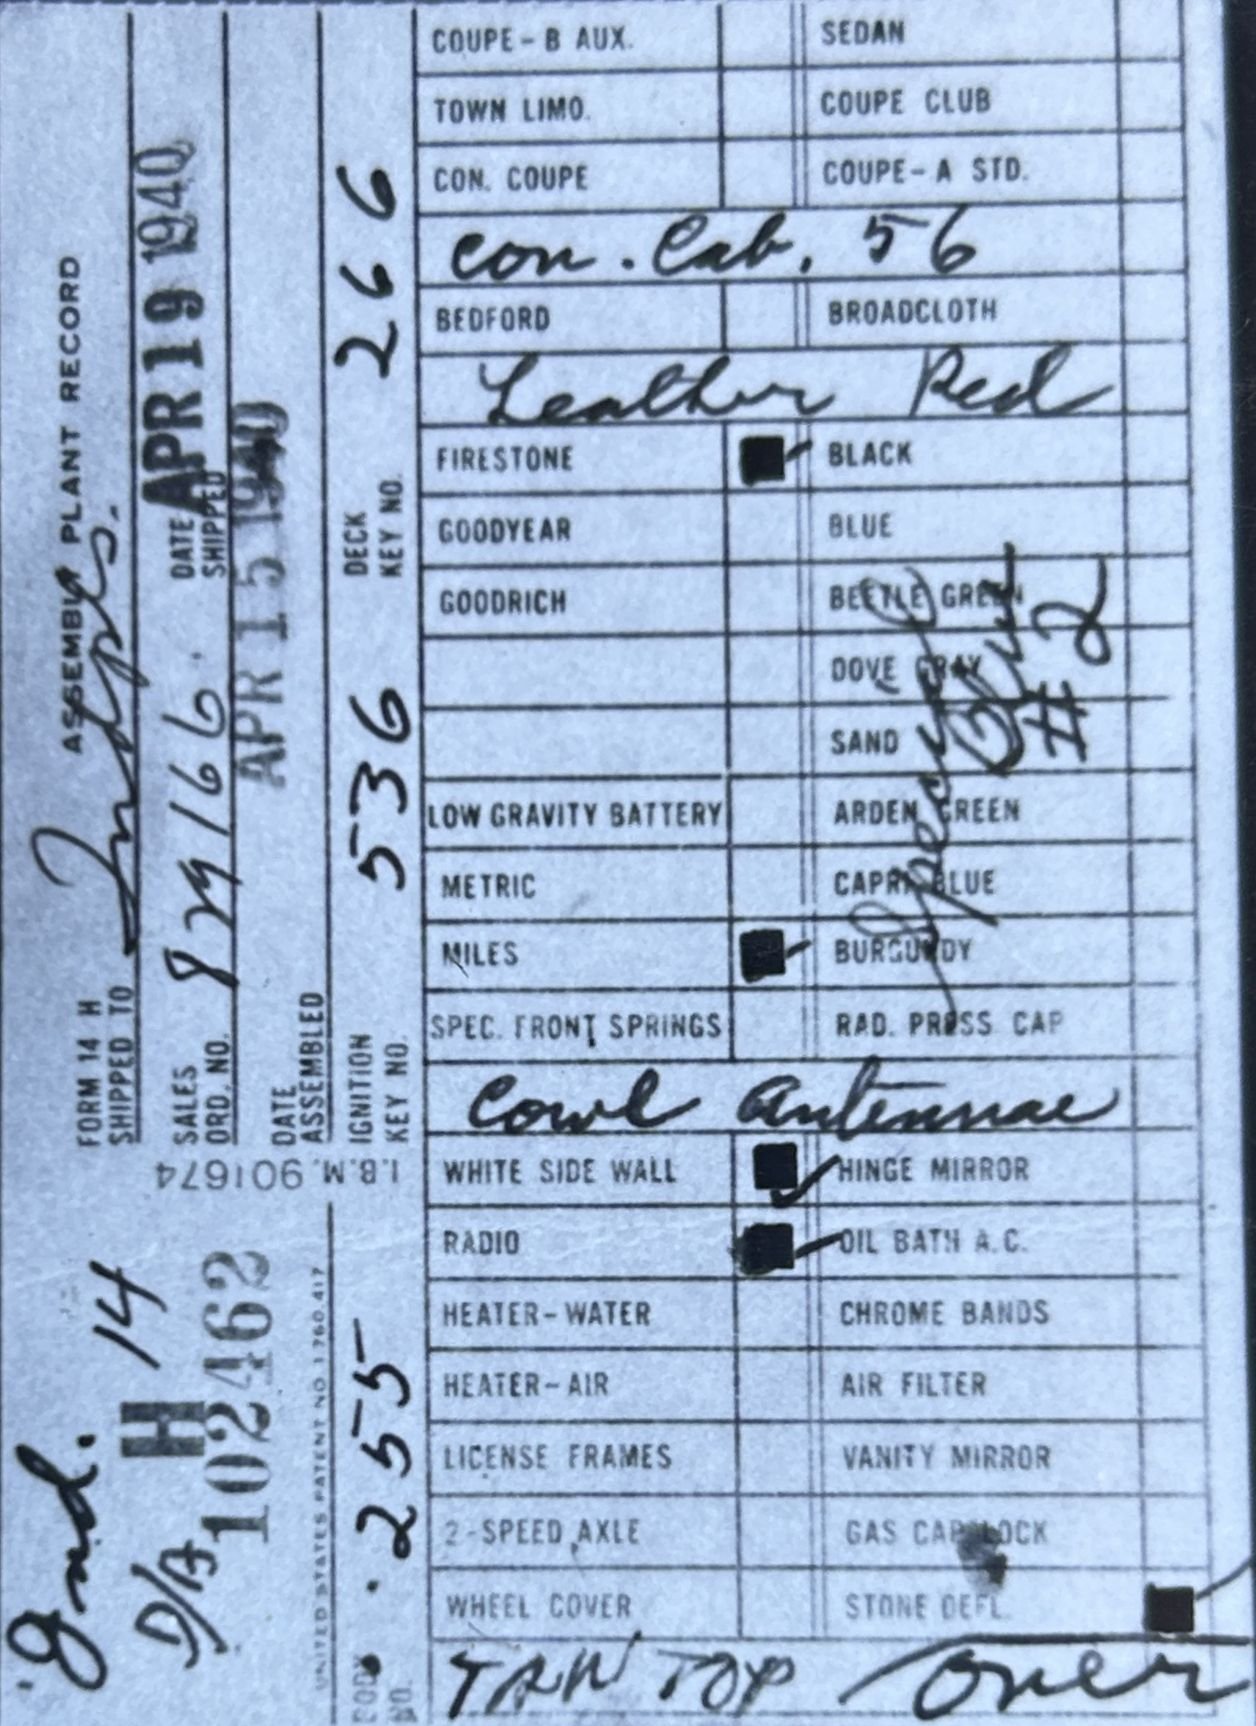 ASSEMBLY PLANT RECORD
FORM 14 H
SHIPPED TO Indpls.
SALES ORD. NO. 829166. DATE SHIPPED APR 19 1940
DATE ASSEMBLED APR 15 1940
IGNITION KEY NO. 536 DECK KEY NO. 266
I.B.M. 901674
Ind.
D/A H 14
H 102462
UNITED STATES PATENT NO 1.760.417
BODY NO. 255
COUPE-B AUX. SEDAN
TOWN LIMO. COUPE CLUB
CON. COUPE COUPE-A STD.
Con. Cab. 56
BEDFORD BROADCLOTH
Leather Red
FIRESTONE BLACK
GOODYEAR BLUE
GOODRICH BEETLE GREEN
DOVE GRAY
SAND
LOW GRAVITY BATTERY ARDEN GREEN
METRIC CAPRI BLUE
MILES BURGUNDY
Special
#2
SPEC. FRONT SPRINGS RAD. PRESS CAP
Cowl Antennae
WHITE SIDE WALL HINGE MIRROR
RADIO OIL BATH A.C.
HEATER-WATER CHROME BANDS
HEATER-AIR AIR FILTER
LICENSE FRAMES VANITY MIRROR
2-SPEED AXLE GAS CAP LOCK
WHEEL COVER STONE DEFL.
TAN TOP over